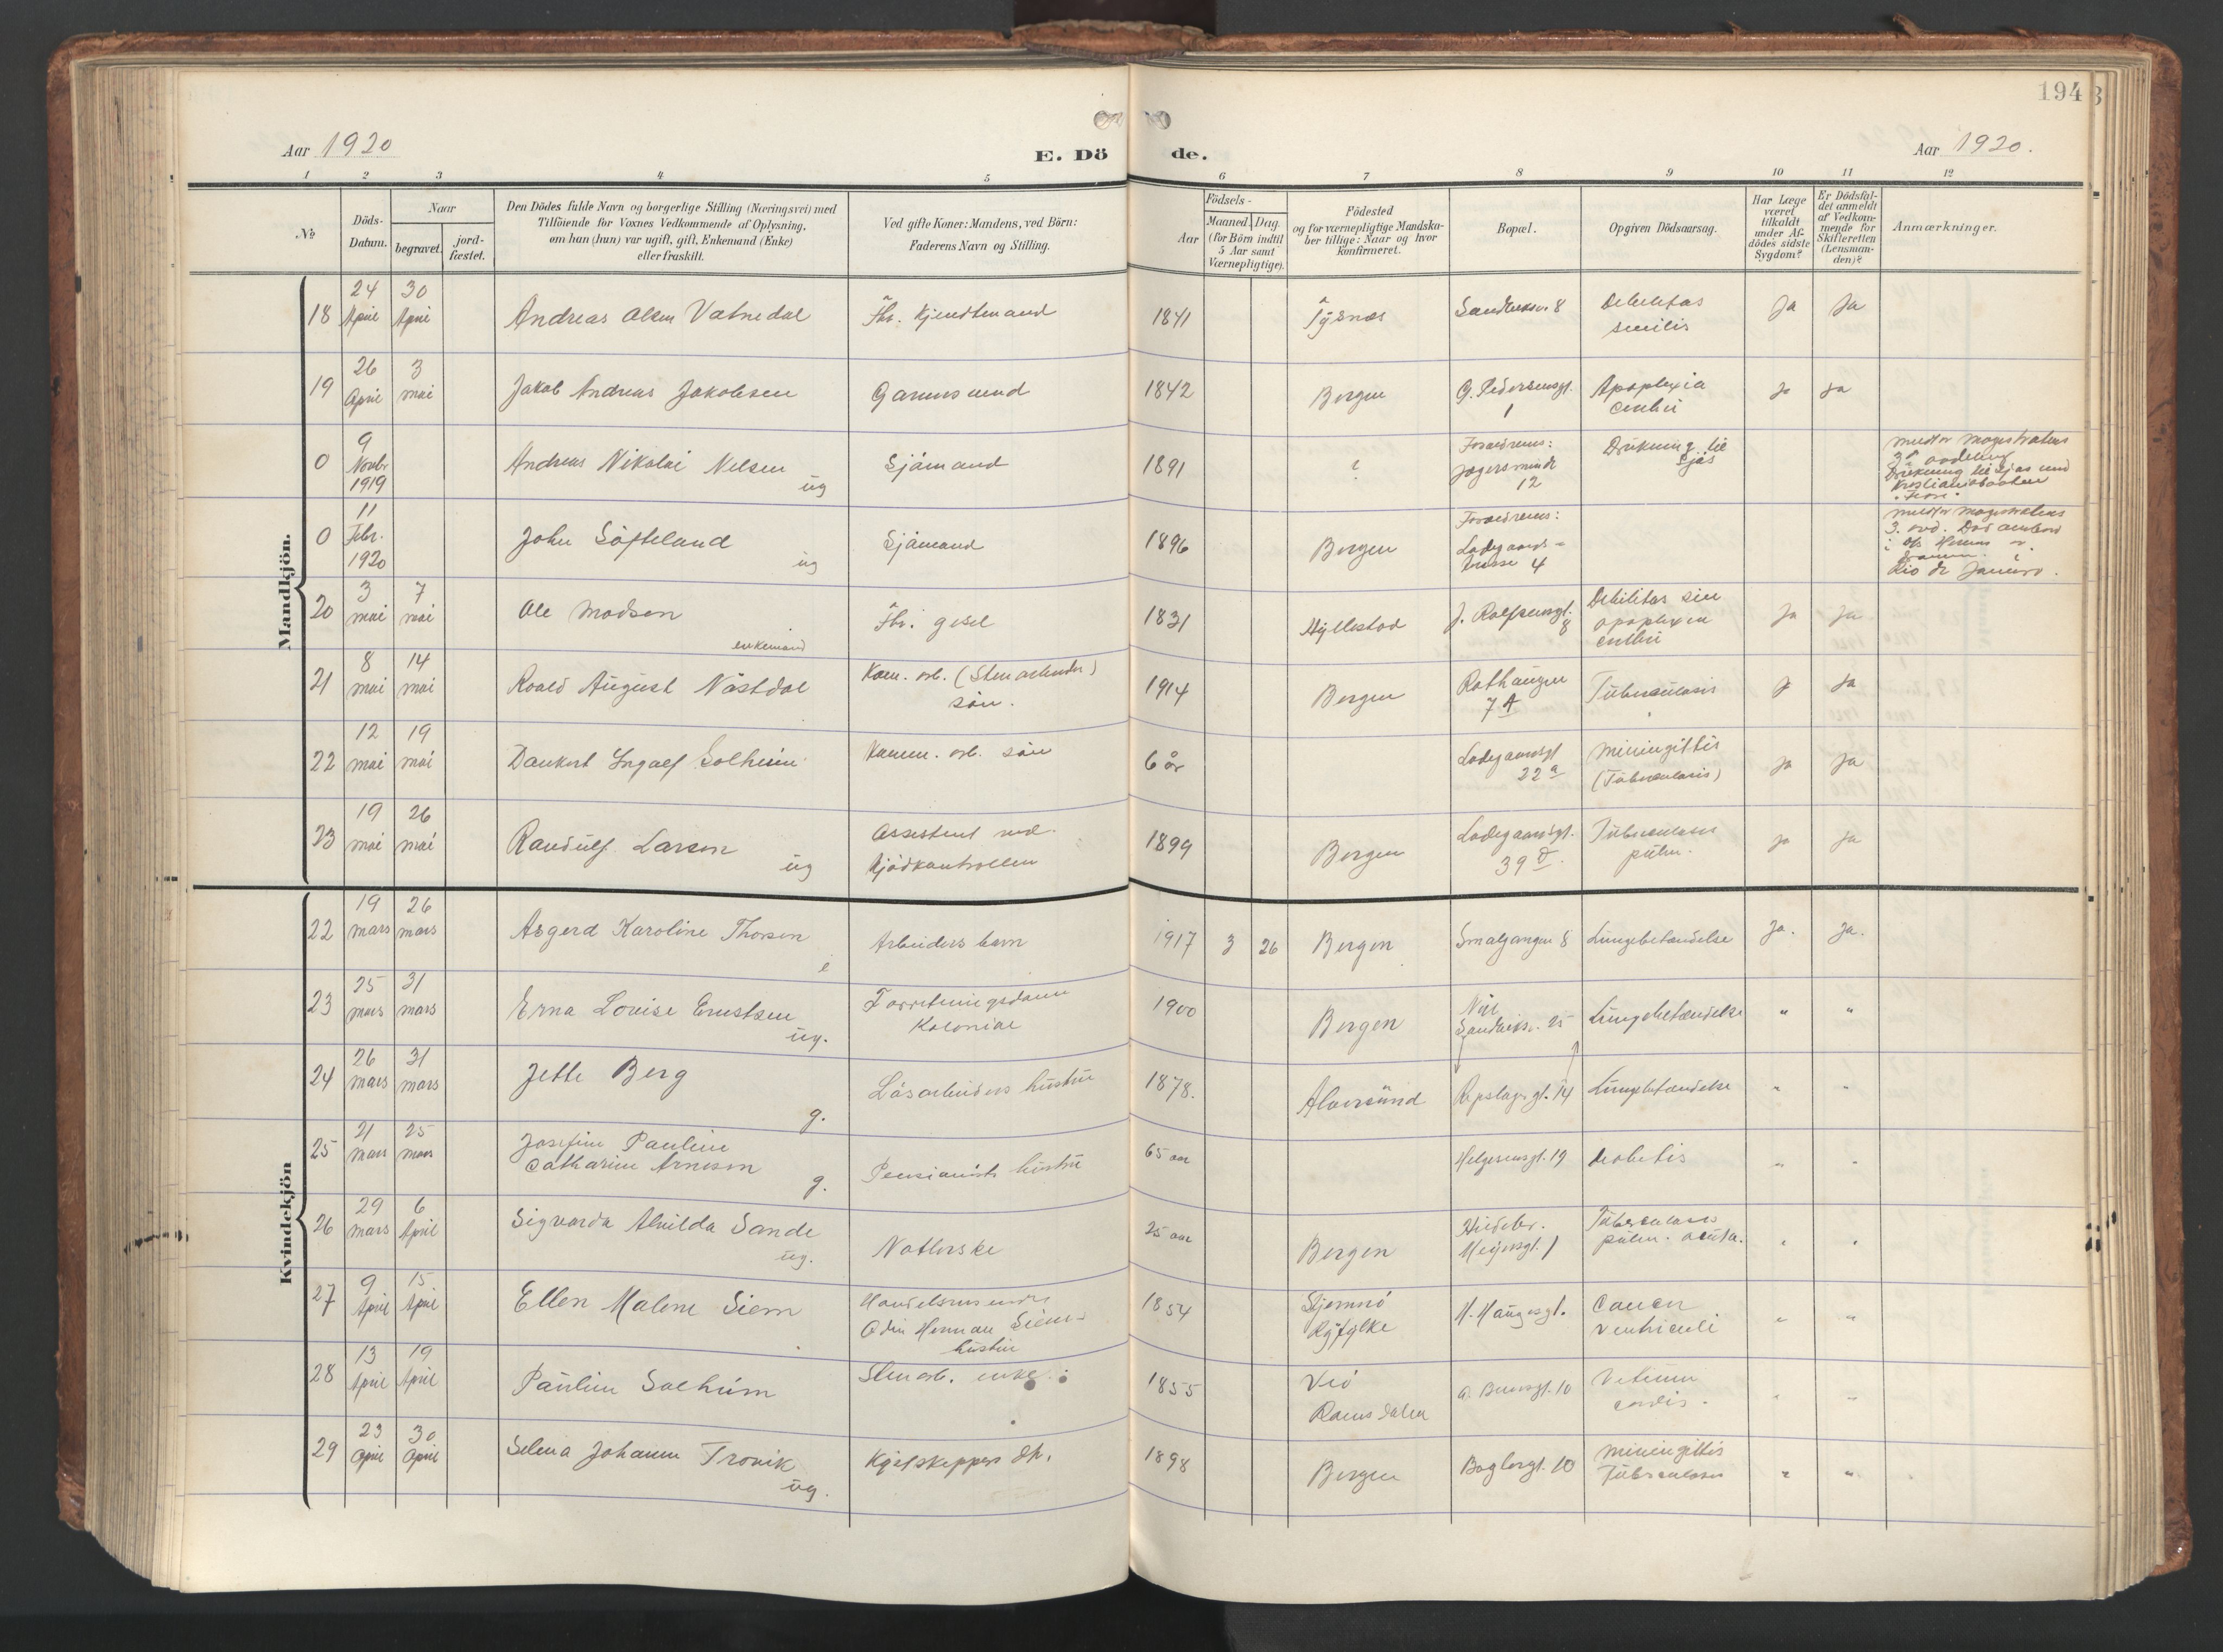 194
Aar 1920
E. Dö de.
Aar 1920.
1 2 3 4 5 6 7 8 9 10 11 12
No
Döds-Datum.
Naar
begravet.
jord-fæstet.
Den Dödes fulde Navn og borgerlige Stilling (Næringsvei) med
Tilföiende for Voxnes Vedkommende af Oplysning,
om han (hun) var ugift, gift, Enkemand (Enke)
eller fraskilt.
Ved gifte Koner: Mandens, ved Börn:
Faderens Navn og Stilling.
Födsels-
Aar
Maaned. Dag.
(for Börn indtil
5 Aar samt
Værnepligtige).
Födested
og for værnepligtige Mandska-
ber tillige: Naar og hvor
konfirmeret.
Bopæl.
Opgiven Dödsaarsag.
Har Læge
været
tilkaldt
under Af-
dödes sidste
Sygdom?
Er Dödsfal-
det anmeldt
af Vedkom-
mende for
Skifteretten
(Lensman-
den)?
Anmærkninger.
Mandkjön.
18 24 April 30 April Andreas Olsen Vatnedal Fhv. Kjendtmand 1841 Tysnæs Sandviksv. 8 Debilitas senilis Ja Ja
19 26 April 3 mai Jakob Andreas Jakobsen 1842 Bergen G. Pedersensgt. 1 Apoplexia cerebri Ja Ja
0 9 Novbr 1919 Andreas Nikolai Nelsen ug Sjömand 1891 Foraeldrenes: 12 Drukning
0 11 Febr. 1920 John Söfteland ug Sjömand 1896 Bergen Foraeldrenes: Ladegaards- 4 Rio de Janeiro.
20 3 mai 7 mai Ole Madsen enkemand Fhv. 1831 Hyllestad J. Rolfsensgt. 8 Debilitas sen apoplexia cerebri Ja Ja
21 8 mai 14 mai Roald August Nästdal Kom. arb. (Stenarbeider) sön. 1914 Bergen Rothaugen 7A Tuberculosis J Ja
22 12 mai 19 mai Dankert Ingolf Solheim Komm. arb. sön 6 år Ladegaardsgt 22 a Meningittis (Tuberculosis) Ja Ja
23 19 mai 26 mai Randulf Larsen ug Assistent ved Kjödkontrollen 1899 Bergen Ladegaardsgt. 39 Tuberculosis pulm. Ja Ja
Kvindekjön
22 19 mars 26 mars Asgerd Karoline Thorsen Arbeiders barn 1917 3 26 Bergen Smalgangen 8 Lungebetændelse Ja. Ja.
23 25 mars 31 mars Erna Lovise Ernstsen ug. Forretningsdame Kolonial 1900 Bergen Sandviksv. 25 Lungebetændelse " "
24 26 mars 31 mars Jette Berg g. Lösarbeiders hustru 1878. Alversund Repslagergt. 14 Lungebetændelse " "
25 21 mars 25 mars Josefine Pauline Catharine Arnesen g. Pensionists hustru 65 aar Helgesensgt. 19 diabetis " "
26 29 mars 6 April Sigvarda Alvilda Sande ug. 25 aar Bergen Meyersgt. 1 Tuberculosis pulm. acuta. " "
27 9 April 15 April Ellen Malene Siem Handelsreisende Odin Herman Siems hustru 1854 Stjernrö Ryfylke H. Haugesgt. Cancer ventriculi " "
28 13 April 19 April Pauline Solheim Stenarb. enke 1855 Veö Romsdalen 10 Vitium cordis. " "
29 23 April 30 April Selma Johanne Trovik ug. 1898 Bergen Baglergt. 10 Meningittis Tuberculosis " "